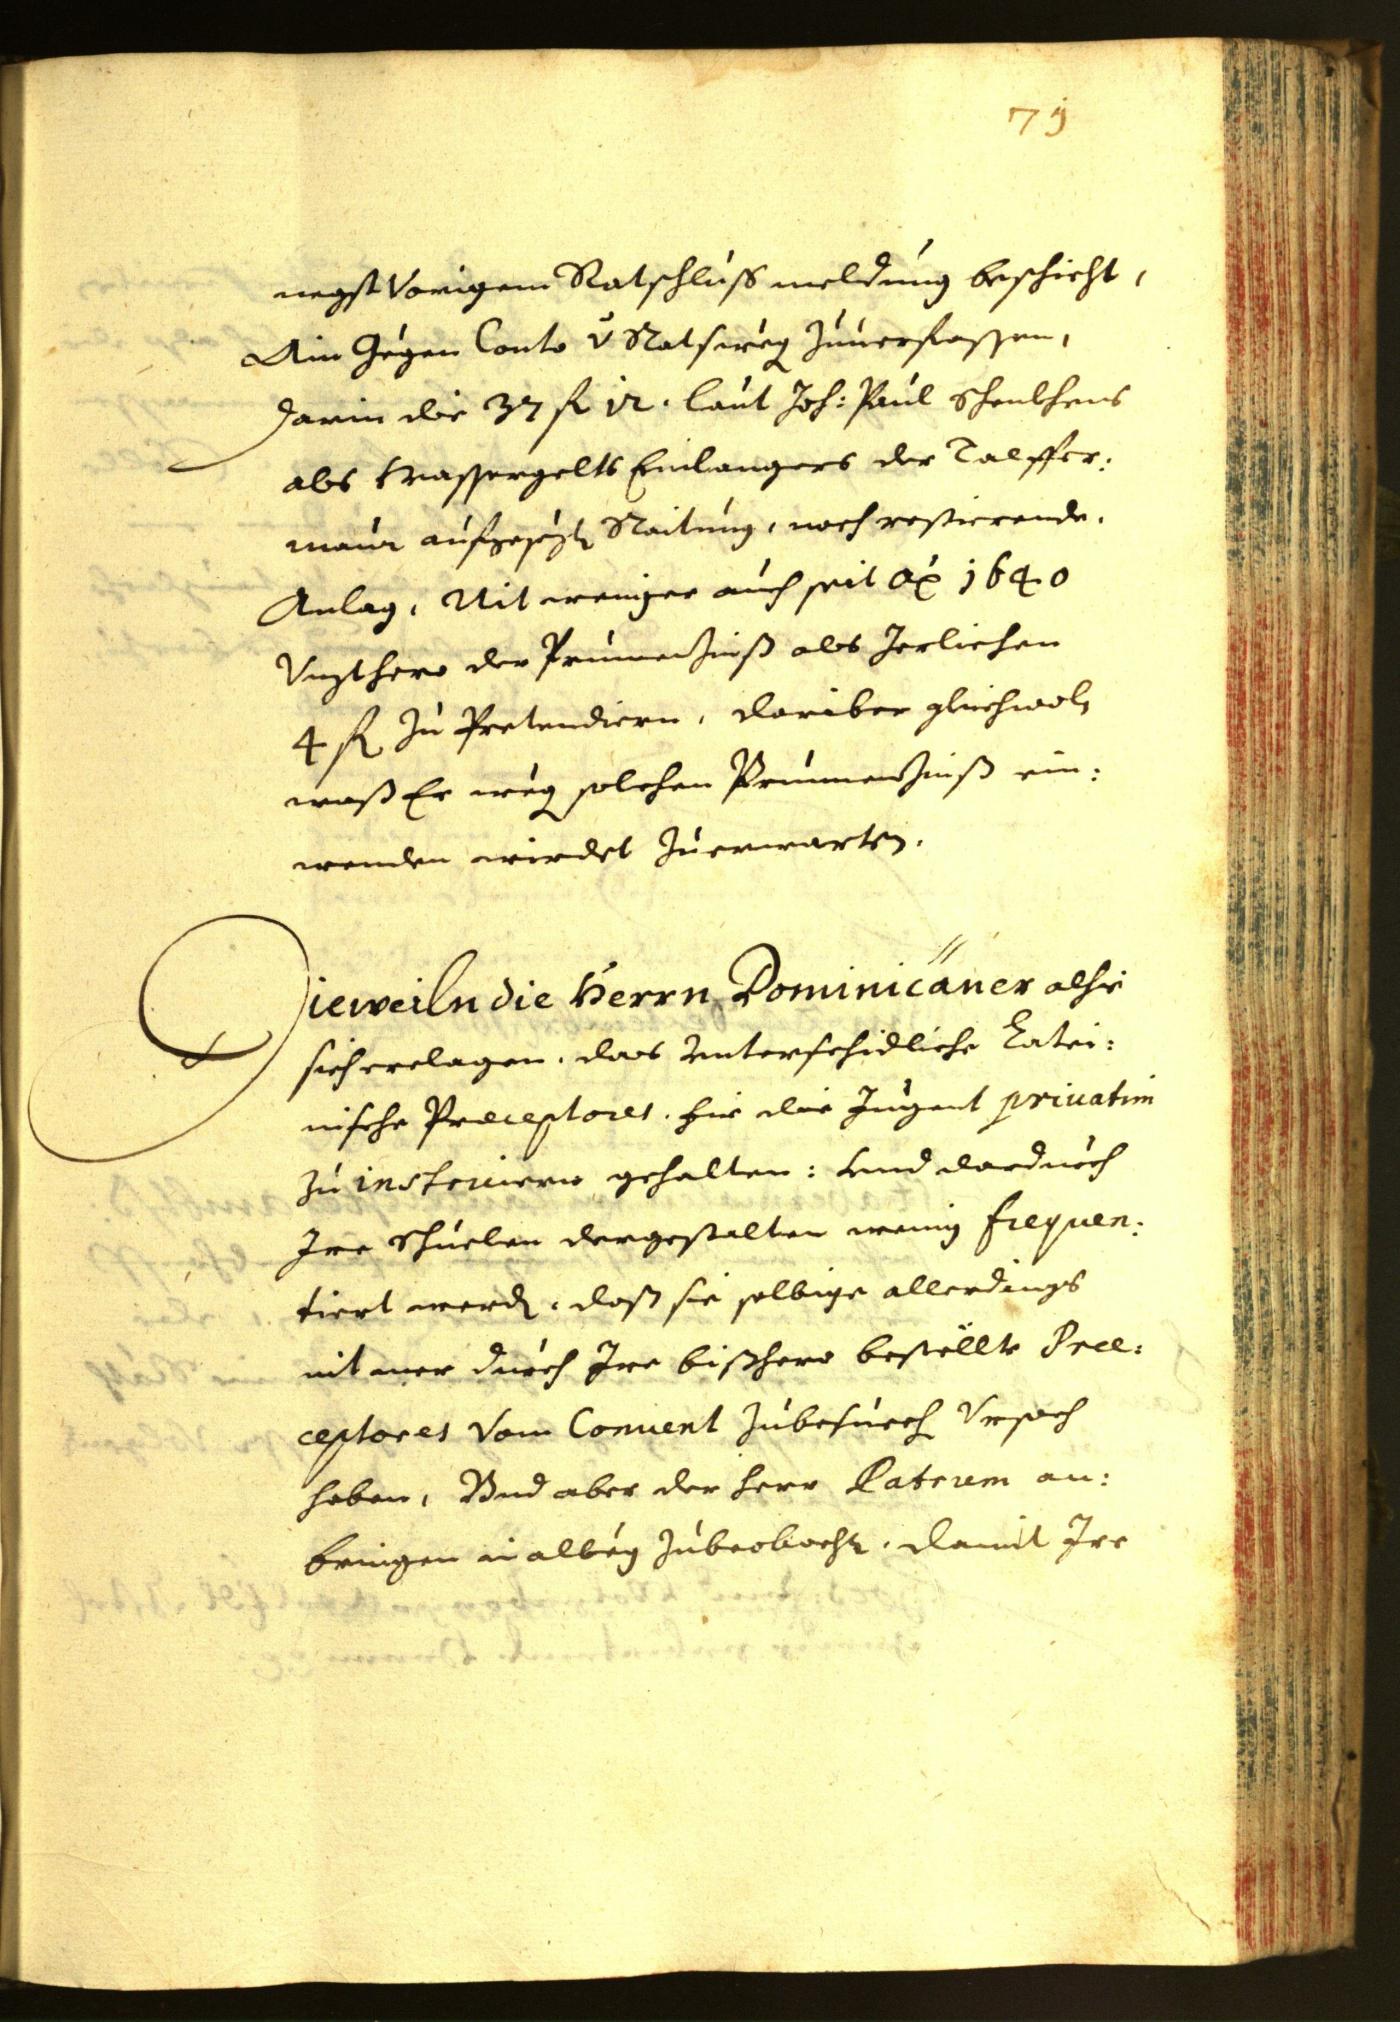 79
negst Vorigem Ratschluss meldung beschicht,
Ain Gegen Conto v Ratsweg Zuuerfassen,
darin die 37 fl 12. laut Joh: Paul Schenkhens
als Wassergelts Einlangers der Talffer:
maur aufgesezte Raitung, noch restierende.
Anlag, Nit weniger auch seit Ao 1640
Vnzthero der Prunnenzinß als Jerlichen
4 fl Zu Pretendiern, dariber gleichwol
waß Er weg solchen Prunnenzinß ein:
wenden wirdet Zuerwarten.
Dieweiln die Herrn Dominicaner alhie
sich erclagen. das Unterschidliche Latei:
nische Præceptores. hie die Jugent priuatim
Zu instruiern gehalten: und dardurch
Jre Schuelen dergestalten wenig frequen:
tiert werdn. daß sie selbige allerdings
nit mer durch Jre bißhero bestellte Præ:
ceptores Vom Conuent Zubesuech Vrsach
haben, Vnd aber der Herr Patrum an:
bringen in albeg Zubeobacht. damit Jre